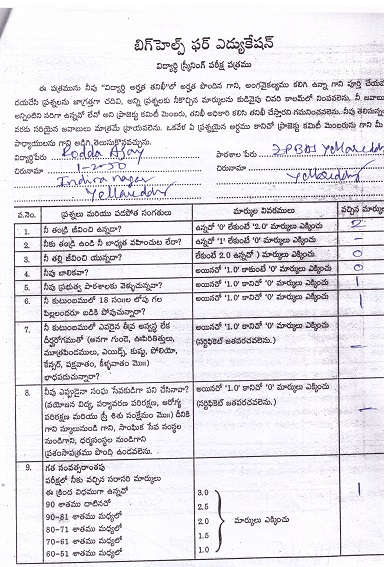 బిగ్‌హెల్ప్ ఫర్ ఎడ్యుకేషన్
విద్యార్థి స్క్రీనింగ్ పరీక్ష పత్రము
ఈ పత్రమును నీవు "విద్యార్థి అర్హత తనిఖీ"లో అర్హత పొందిన గాని, అంగవైకల్యము కలిగి ఉన్నా గాని పూర్తి చేయవ
దయచేసి ప్రశ్నలను జాగ్రత్తగా చదివి, అన్ని ప్రశ్నలకు నీకొచ్చిన మార్కులను కుడివైపు చివరి కాలమ్‌లో నింపవలెను. నీ జవాబు
అన్నింటిని సరిగా ఉన్నదో లేదో అని ప్రాజెక్టు కమిటీ మెంబరు, తనిఖీ అధికారి కలిసి తనిఖీ చేస్తారని గమనించవలెను. నీవు తెలిసున్న
వరకు సరియైన జవాబులు మాత్రమే వ్రాయవలెను. ఒకవేళ ఏ ప్రశ్నయైన అర్థము కానిచో ప్రాజెక్టు కమిటీ మెంబరును గాని మీ
పాఠ్యాయులను గాని అడిగి తెలుసుకొన్నవచ్చును.
విద్యార్థిపేరు Kodda Ajay పాఠశాల పేరు ZPBHS Yellareddy
చిరునామా 1-2-50 చిరునామా Yellareddy
Indira nagar
Yellareddy
వ.నెం. ప్రశ్నలు మరియు పడపోత సంగతులు మార్కుల వివరములు వచ్చిన మార్కు
1. నీ తండ్రి జీవించి ఉన్నాడా? ఉన్నచో '0' లేకుంటే '2.0' మార్కులు ఎక్కించు 2
2. నీకు తండ్రి ఉండి నీ బాధ్యత వహించుట లేదా? ఉన్నచో '1' లేకుంటే '0' మార్కులు ఎక్కించు –
3. నీ తల్లి జీవించి యున్నదా? లేకుంటే 2.0 ఉన్నచో ) మార్కులు ఎక్కించు 0
4. నీవు బాలికవా? అయినచో '1.0' కాకుంటే '0' మార్కులు ఎక్కించు 0
5. నీవు ప్రభుత్వ పాఠశాలకు వెళ్ళుచున్నావా? అయినచో '1.0' కానిచో '0' మార్కులు ఎక్కించు 1
6. నీ కుటుంబములో 18 సం॥ల లోపు గల అయినచో '1.0' కానిచో '0' మార్కులు ఎక్కించు 1
పిల్లలందరూ బడికి పోవుచున్నారా?
7. నీ కుటుంబములో ఎవరైన దీర్ఘ అస్వస్థ లేక అయినచో '1.0' కానిచో '0' మార్కులు ఎక్కించు –
దీర్ఘరోగముతో (అనగా గుండె, ఊపిరితిత్తులు, (సర్టిఫికెట్ జతపరచవలెను.)
మూత్రపిండములు, ఎయిడ్స్, కుష్ఠు, పోలియో,
కేన్సర్, పక్షవాతం, కీళ్ళవాతం మొ॥)
భాధపడుచున్నారా?
8. నీవు ఎప్పుడైనా సంఘ సేవకుడుగా పని చేసినావా? అయినచో '1.0' కానిచో '0' మార్కులు ఎక్కించు –
(వయోజన విద్య, పర్యావరణ పరిరక్షణ, ఆరోగ్య (సర్టిఫికెట్ జతపరచవలెను.)
పరిరక్షణ మరియు స్త్రీ శిశు సంక్షేమం మొ॥) దీనికి
గాని స్కూలునుండి గాని, సాంఘిక సేవ సంస్థల
నుండిగాని, ధర్మసంస్థల నుండిగాని
ప్రశంసాపత్రము పొంది ఉండవలెను.
9. గత సంవత్సరాంతపు 1
పరీక్షలో నీకు వచ్చిన సరాసరి మార్కులు
ఈ క్రింద విధముగా ఉన్నచో 3.0
90 శాతము దాటినచో 2.5
90-81 శాతము మధ్యలో 2.0 మార్కులు ఎక్కించు
80-71 శాతము మధ్యలో 1.5
70-61 శాతము మధ్యలో 1.0
60-51 శాతము మధ్యలో